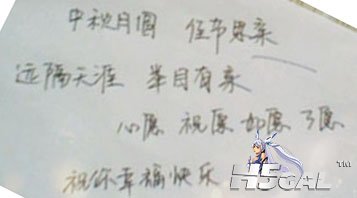 中秋月圆 佳节思亲
远隔天涯 举目有亲
心愿 祝愿 如愿 了愿
祝你幸福快乐
HSGAL